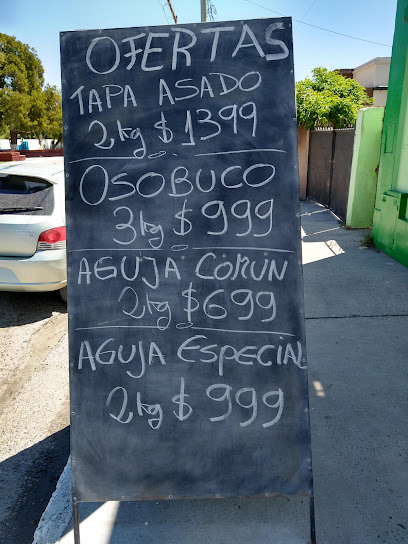 OFERTAS
TAPA ASADO
2kg $1399
OSOBUCO
3kg $999
AGUJA COMÚN
2kg $699
AGUJA ESPECIAL
2kg $999